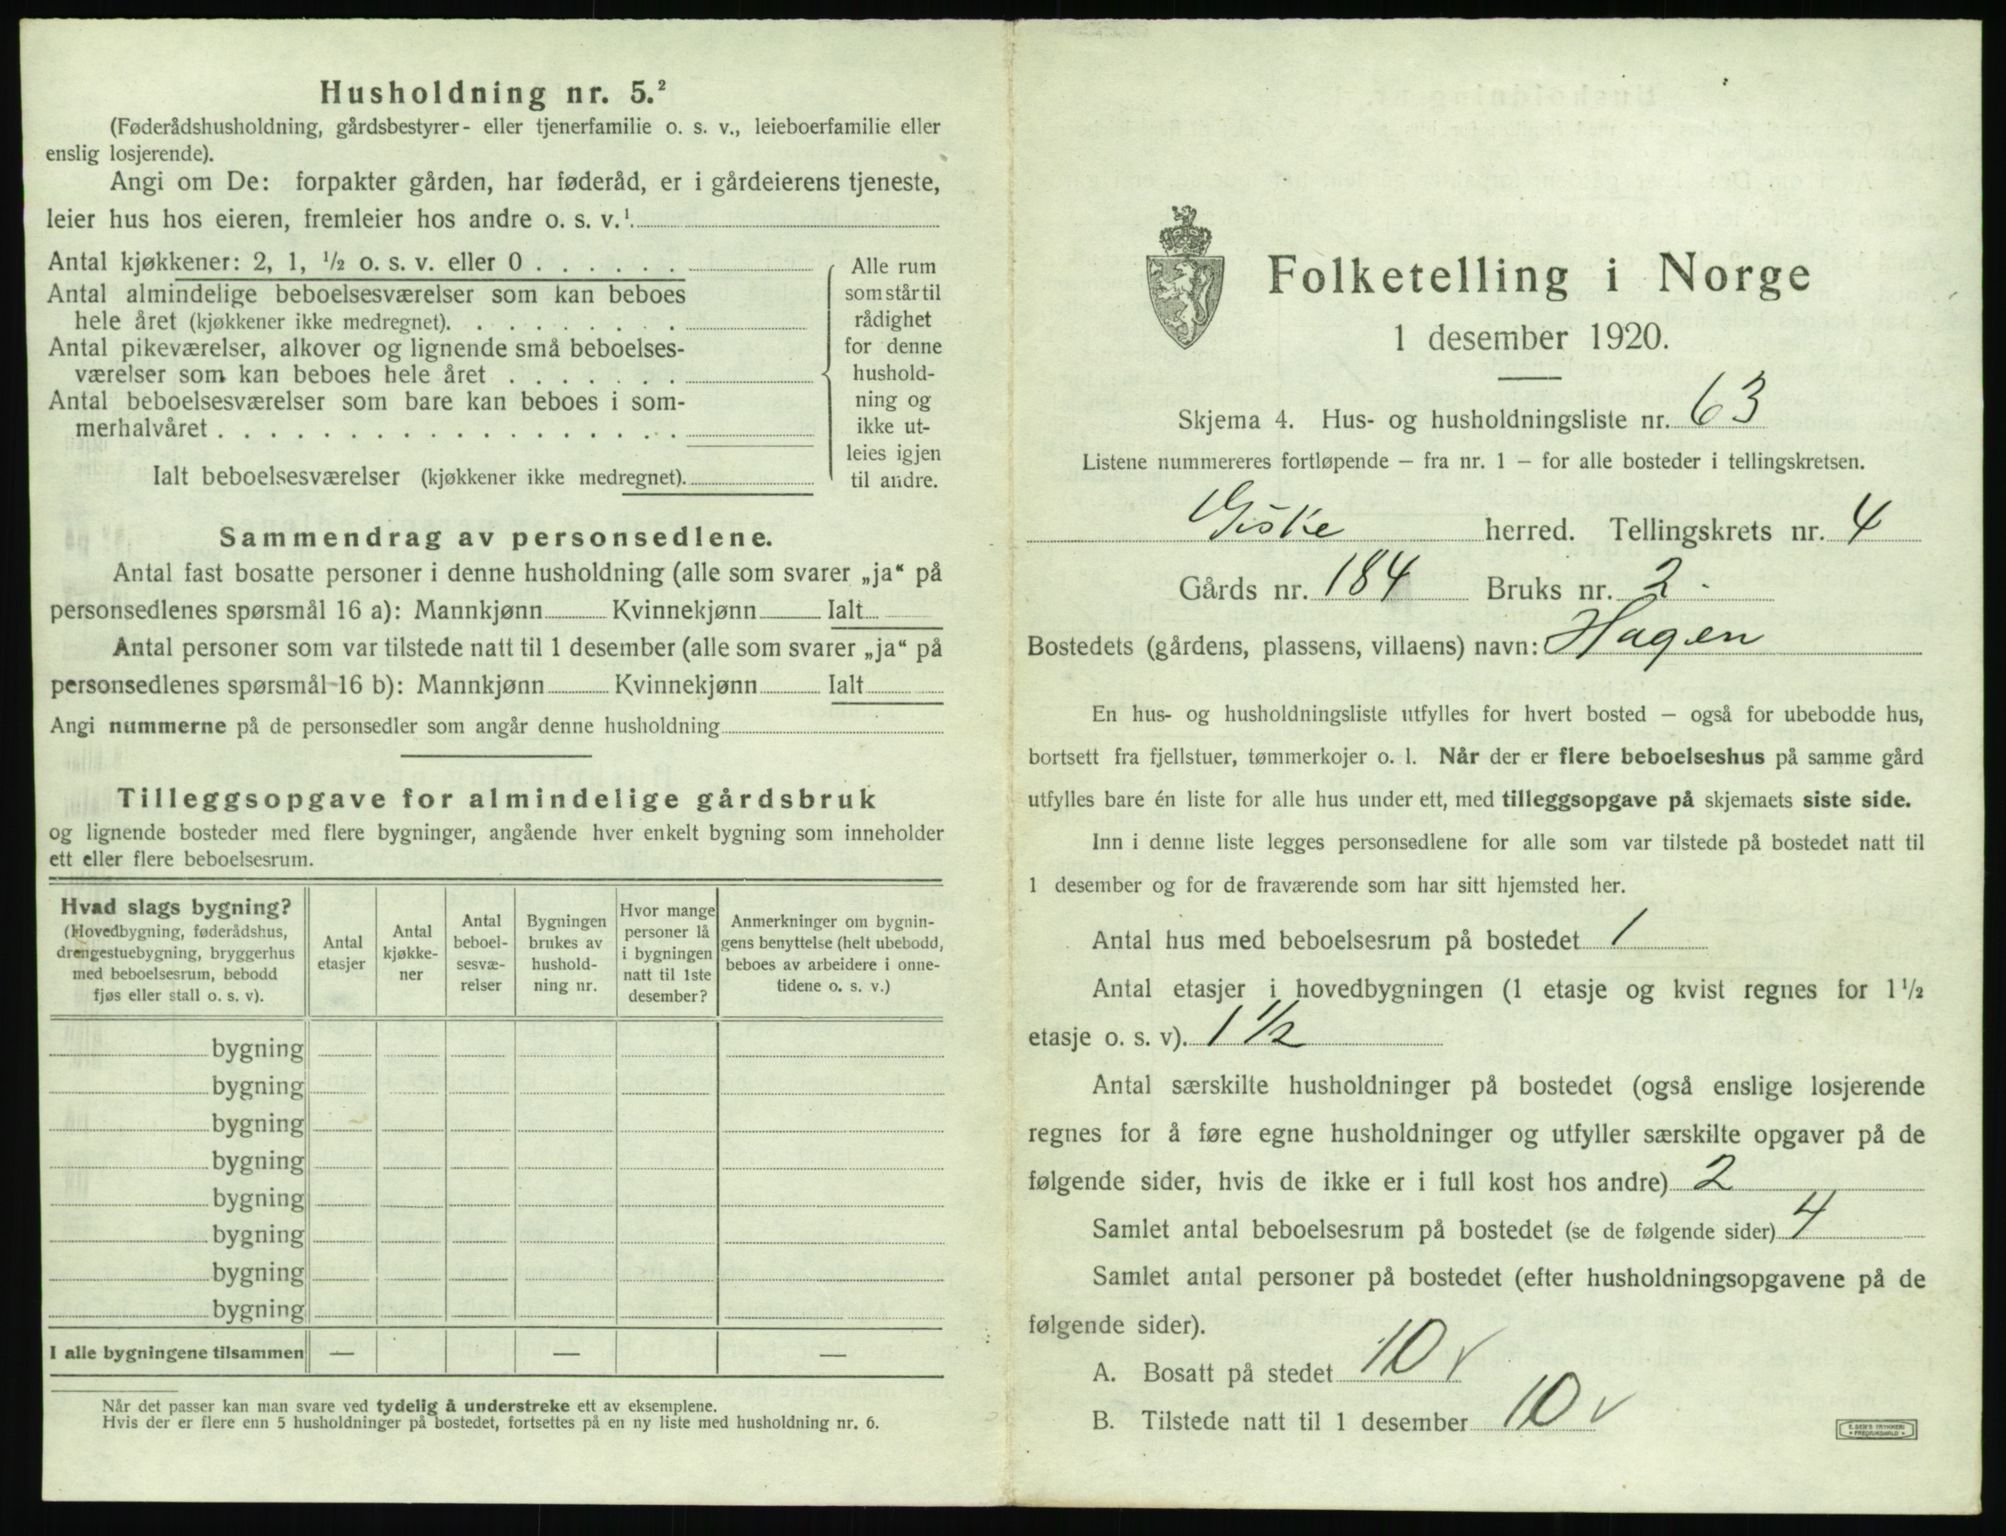 Husholdning nr. 5.²
(Føderådshusholdning, gårdsbestyrer- eller tjenerfamilie o. s. v., leieboerfamilie eller
enslig losjerende).
Angi om De: forpakter gården, har føderåd, er i gårdeierens tjeneste,
leier hus hos eieren, fremleier hos andre o. s. v.¹
Antal kjøkkener: 2, 1, ½ o. s. v. eller 0 . . . . . .
Antal almindelige beboelsesværelser som kan beboes
hele året (kjøkkener ikke medregnet). . . . . . . . .
Antal pikeværelser, alkover og lignende små beboelses-
værelser som kan beboes hele året . . . . . . .
Antal beboelsesværelser som bare kan beboes i som-
merhalvåret . . . . . . . . . . . . . . . . . .
Ialt beboelsesværelser (kjøkkener ikke medregnet).
Alle rum
som står til
rådighet
for denne
hushold-
ning og
ikke ut-
leies igjen
til andre.
Sammendrag av personsedlene.
Antal fast bosatte personer i denne husholdning (alle som svarer „ja“ på
personsedlenes spørsmål 16 a): Mannkjønn Kvinnekjønn Ialt
Antal personer som var tilstede natt til 1 desember (alle som svarer „ja“ på
personsedlenes spørsmål 16 b): Mannkjønn Kvinnekjønn Ialt
Angi nummerne på de personsedler som angår denne husholdning
Tilleggsopgave for almindelige gårdsbruk
og lignende bosteder med flere bygninger, angående hver enkelt bygning som inneholder
ett eller flere beboelsesrum.
Hvad slags bygning?
(Hovedbygning, føderådshus,
drengestuebygning, bryggerhus
med beboelsesrum, bebodd
fjøs eller stall o. s. v).
Antal
etasjer
Antal
kjøkke-
ner
Antal
beboel-
sesvæ-
relser
Bygningen
brukes av
hushold-
ning nr.
Hvor mange
personer lå
i bygningen
natt til 1ste
desember?
Anmerkninger om bygnin-
gens benyttelse (helt ubebodd,
beboes av arbeidere i onne-
tidene o. s. v.)
bygning
bygning
bygning
bygning
bygning
bygning
bygning
bygning
I alle bygningene tilsammen — — —
Når det passer kan man svare ved tydelig å understreke ett av eksemplene.
Hvis der er flere enn 5 husholdninger på bostedet, fortsettes på en ny liste med husholdning nr. 6.
Folketelling i Norge
1 desember 1920.
Skjema 4. Hus- og husholdningsliste nr. 63
Listene nummereres fortløpende – fra nr. 1 – for alle bosteder i tellingskretsen.
Giske herred. Tellingskrets nr. 4
Gårds nr. 184 Bruks nr. 2.
Bostedets (gårdens, plassens, villaens) navn: Hagen
En hus- og husholdningsliste utfylles for hvert bosted – også for ubebodde hus,
bortsett fra fjellstuer, tømmerkojer o. l. Når der er flere beboelseshus på samme gård
utfylles bare én liste for alle hus under ett, med tilleggsopgave på skjemaets siste side.
Inn i denne liste legges personsedlene for alle som var tilstede på bostedet natt til
1 desember og for de fraværende som har sitt hjemsted her.
Antal hus med beboelsesrum på bostedet 1
Antal etasjer i hovedbygningen (1 etasje og kvist regnes for 1½
etasje o. s. v). 1 ½
Antal særskilte husholdninger på bostedet (også enslige losjerende
regnes for å føre egne husholdninger og utfyller særskilte opgaver på de
følgende sider, hvis de ikke er i full kost hos andre) 2
Samlet antal beboelsesrum på bostedet (se de følgende sider) 4
Samlet antal personer på bostedet (efter husholdningsopgavene på de
følgende sider).
A. Bosatt på stedet 10 v
B. Tilstede natt til 1 desember 10 v